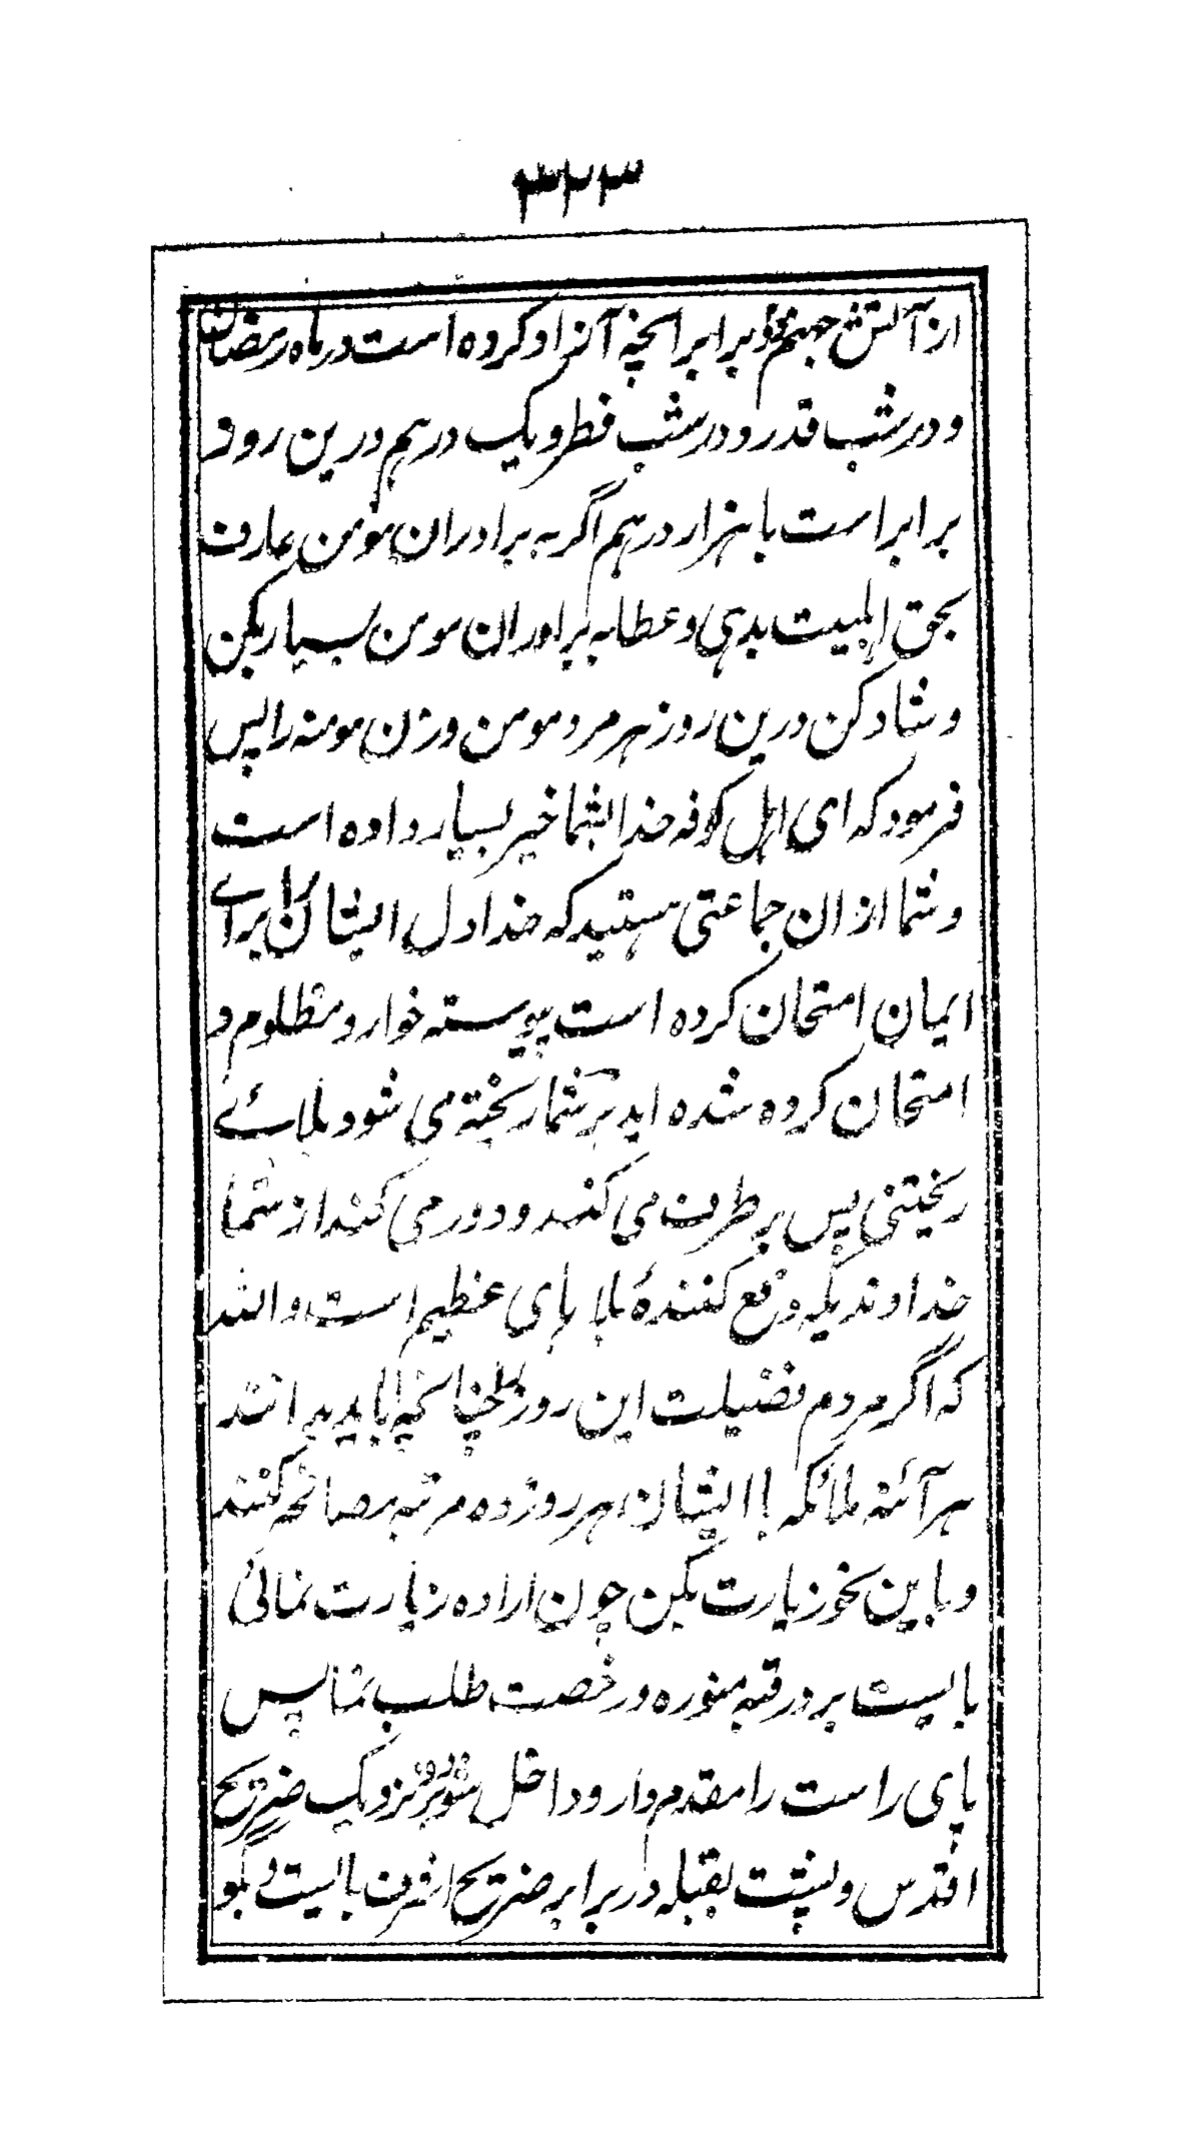 ۳۲۳
از آتش جهنم دو برابر آنچه آزاد کرده است در ماه رمضان
و در شب قدر و در شب فطر و یک درهم درین روز
برابر است با هزار درهم اگر به برادران مؤمن عارف
بحق اهلبیت بدهی و عطا به برادران مومن بسیار بکن
و شاد کن درین روز هر مرد مومن و زن مومنه را پس
فرمود که ای اهل کوفه خدا بشما خیر بسیار داده است
و شما ازان جماعتی هستید که خدا دل ایشان را برای
ایمان امتحان کرده است پیوسته خوار و مظلوم و
امتحان کرده شده اید بر شما ریخته می شود بلائے
ریختنی پس برطرف می کند و دور می کند از شما
خداوندیکه دفع کنندهٔ بلا های عظیم است والله
که اگر مردم فضیلت این روز را چنانچه باید بدانند
هر آئنه ملائکه با ایشان هر روز ده مرتبه مصافحه کنند
و باین نحو زیارت بکن چون اراده زیارت نمائی
بایست بر در قبه منوره و رخصت طلب نما پس
پای راست را مقدم دار و داخل شو و برو نزدیک ضریح
اقدس و پشت بقبله در برابر ضریح اشرف بایست و بگو